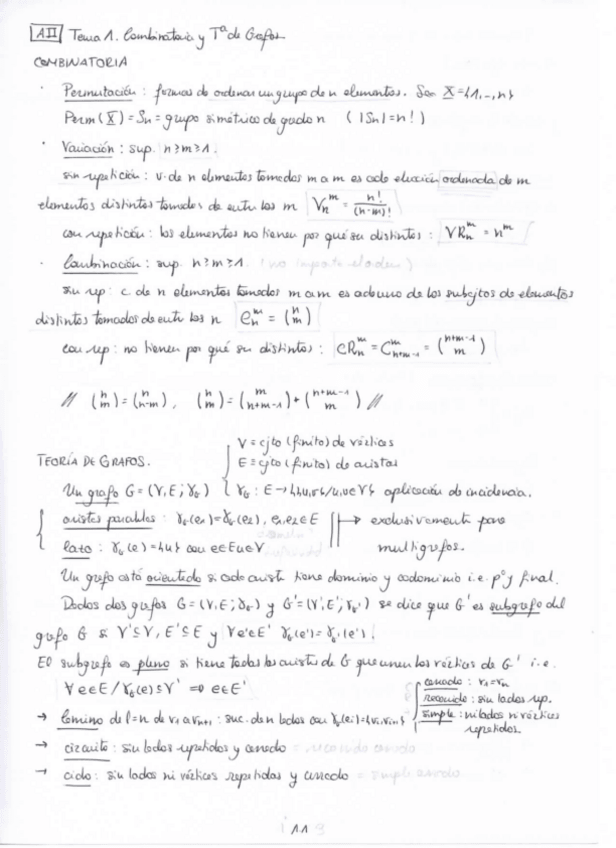 AII Tema 1. Combinatoria y Tª de Grafos.
COMBINATORIA
· Permutación: formas de ordenar un grupo de n elementos. Sea X={1,..,n}
Perm(X) = Sn = grupo simétrico de grado n (|Sn|=n!)
· Variación: sup. n≥m≥1.
sin repetición: v. de n elementos tomados m a m es cada elección ordenada de m
elementos distintos tomados de entre los m V_n^m = n!/(n-m)!
con repetición: los elementos no tienen por qué ser distintos: VR_n^m = n^m
· Combinación: sup. n≥m≥1. (no importa el orden)
sin rep: c de n elementos tomados m a m es cada uno de los subcjtos de elementos
distintos tomados de entre los n C_n^m = (n m)
con rep: no tienen por qué ser distintos: CR_n^m = C_{n+m-1}^m = (n+m-1 m)
// (n m) = (n n-m), (n m) = (m n+m-1) + (n+m-1 m) //
V = cjto (finito) de vértices
TEORÍA DE GRAFOS. E = cjto (finito) de aristas
Un grafo G = (V, E; γG) γG: E → {{u,v}/u,v∈V} aplicación de incidencia.
aristas paralelas: γG(e1)=γG(e2), e1,e2∈E → exclusivamente para
lazo: γG(e)={u} con e∈E u∈V multigrafos.
Un grafo está orientado si cada arista tiene dominio y codominio i.e. pº y final.
Dados dos grafos G=(V,E;γG) y G'=(V',E';γG') se dice que G' es subgrafo del
grafo G si V'⊆V, E'⊆E y ∀e'∈E' γG(e')=γG'(e').
El subgrafo es pleno si tiene todas las aristas de G que unen los vértices de G' i.e.
∀e∈E / γG(e)⊆V' ⇒ e∈E' cerrado: v1=vn
recorrido: sin lados rep.
→ Camino de l=n de v1 a vn+1: suc. de n lados con γG(ei)={vi,vi+1} simple: ni lados ni vértices
repetidos.
→ circuito: sin lados repetidos y cerrado = recorrido cerrado
→ ciclo: sin lados ni vértices repetidos y cerrado = simple cerrado
11